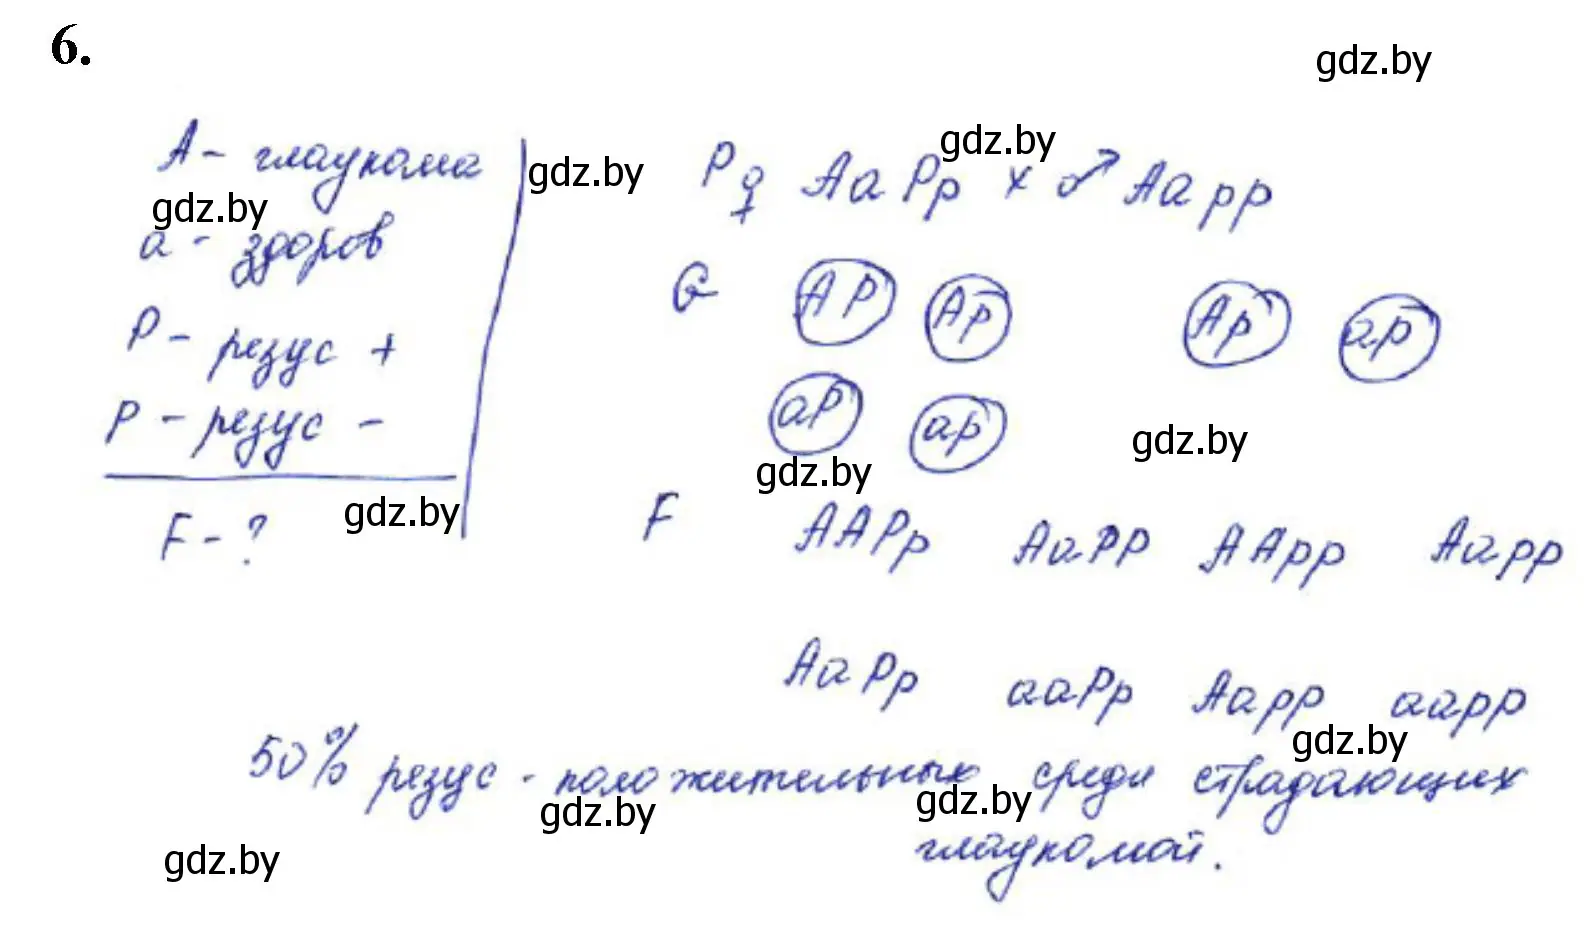 6.
gdz.by
А - глаукома
gdz.by
а - здоров
Р - резус +
р - резус -
F - ?
gdz.by
gdz.by
gdz.by
P ♀ AaPp x ♂ Aapp
G AP Ap Ap ap
aP ap
gdz.by
gdz.by
F AAPp AaPp AApp Aapp
AaPp aaPp Aapp aapp
gdz.by
50% резус - положительных среди страдающих
gdz.by
gdz.by
глаукомой.
gdz.by